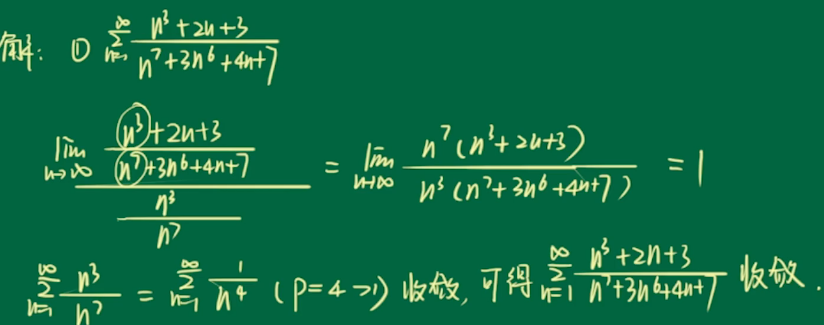 解: ① ∑_{n=1}^{∞} (n³+2n+3)/(n⁷+3n⁶+4n+7)
lim_{n→∞} ((n³+2n+3)/(n⁷+3n⁶+4n+7))/(n³/n⁷) = lim_{n→∞} (n⁷(n³+2n+3))/(n³(n⁷+3n⁶+4n+7)) = 1
∑_{n=1}^{∞} n³/n⁷ = ∑_{n=1}^{∞} 1/n⁴ (P=4>1) 收敛, 可得 ∑_{n=1}^{∞} (n³+2n+3)/(n⁷+3n⁶+4n+7) 收敛.